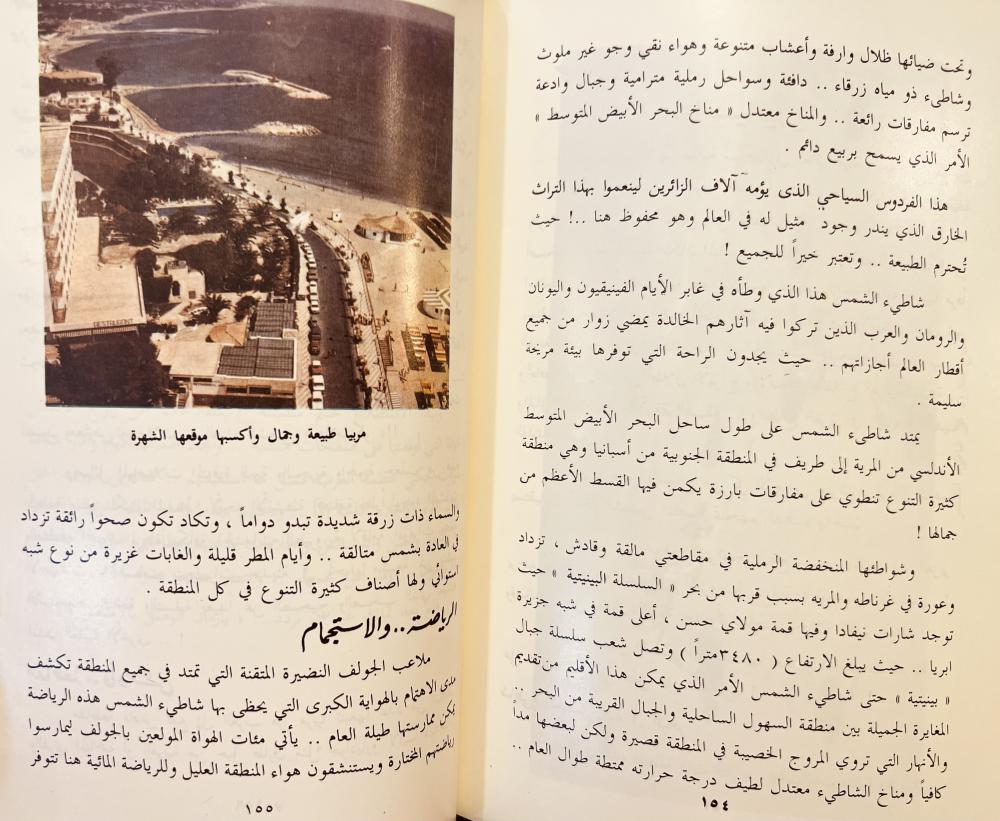 وتحت ضيائها ظلال وارفة وأعشاب متنوعة وهواء نقي وجو غير ملوث
وشاطىء ذو مياه زرقاء .. دافئة وسواحل رملية مترامية وجبال وادعة
ترسم مفارقات رائعة .. والمناخ معتدل « مناخ البحر الأبيض المتوسط »
الأمر الذي يسمح بربيع دائم .
هذا الفردوس السياحي الذى يؤمه آلاف الزائرين لينعموا بهذا التراث
الخارق الذي يندر وجود مثيل له في العالم وهو محفوظ هنا ..! حيث
تُحترم الطبيعة .. وتعتبر خيراً للجميع !
شاطيء الشمس هذا الذي وطأه في غابر الأيام الفينيقيون واليونان
والرومان والعرب الذين تركوا فيه آثارهم الخالدة يمضي زوار من جميع
أقطار العالم أجازاتهم .. حيث يجدون الراحة التي توفرها بيئة مريحة
سليمة .
يمتد شاطيء الشمس على طول ساحل البحر الأبيض المتوسط
الأندلسي من المرية إلى طريف في المنطقة الجنوبية من أسبانيا وهي منطقة
كثيرة التنوع تنطوي على مفارقات بارزة يكمن فيها القسط الأعظم من
جمالها !
وشواطئها المنخفضة الرملية في مقاطعتي مالقة وقادش ، تزداد
وعورة في غرناطه والمريه بسبب قربها من بحر « السلسلة البينيتية » حيث
توجد شارات نيفادا وفيها قمة مولاي حسن ، أعلى قمة في شبه جزيرة
ابريا .. حيث يبلغ الارتفاع ( ٣٤٨٠ متراً ) وتصل شعب سلسلة جبال
« بينيتية » حتى شاطيء الشمس الأمر الذي يمكن هذا الأقليم من تقديم
المغايرة الجميلة بين منطقة السهول الساحلية والجبال القريبة من البحر ..
والأنهار التي تروي المروج الخصيبة في المنطقة قصيرة ولكن لبعضها مداً
كافياً ومناخ الشاطيء معتدل لطيف درجة حرارته ممتطة طوال العام ..
١٥٤
مربيا طبيعة وجمال وأكسبها موقعها الشهرة
والسماء ذات زرقة شديدة تبدو دواماً ، وتكاد تكون صحواً رائقة تزداد
في العادة بشمس متالقة .. وأيام المطر قليلة والغابات غزيرة من نوع شبه
استوائي ولها أصناف كثيرة التنوع في كل المنطقة .
الرياضة .. والاستجمام
ملاعب الجولف النضيرة المتقنة التي تمتد في جميع المنطقة تكشف
مدى الاهتمام بالهواية الكبرى التي يحظى بها شاطيء الشمس هذه الرياضة
يمكن ممارستها طيلة العام .. يأتي مئات الهواة المولعين بالجولف ليمارسوا
رياضتهم المختارة ويستنشقون هواء المنطقة العليل وللرياضة المائية هنا تتوفر
١٥٥